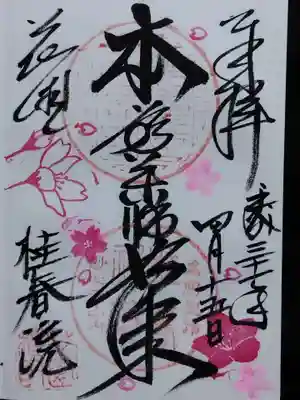 奉拝
平成三十一年
四月十五日
本尊薬師如来
花園
桂春院